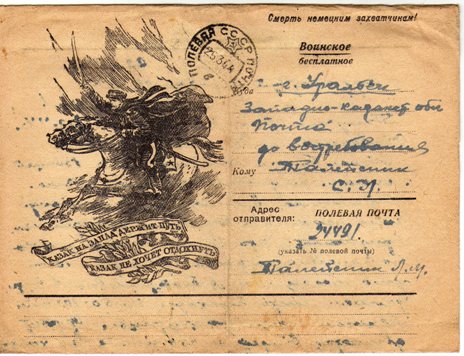 Смерть немецким захватчикам!
Воинское
бесплатное
ПОЛЕВАЯ ПОЧТА
СССР
Куда г. Уральск
Западно-Казахст обл
Почта
до востребования
Кому
С.
КАЗАК НА ЗАПАД ДЕРЖИТ ПУТЬ
КАЗАК НЕ ХОЧЕТ ОТДОХНУТЬ
Адрес
отправителя: ПОЛЕВАЯ ПОЧТА
24491
(указать № полевой почты)